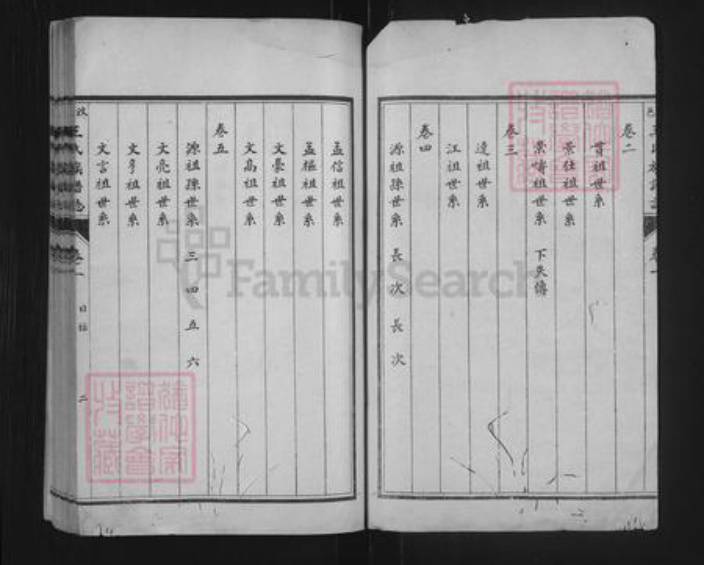 卷二
貫祖世系
景仕祖世系
景壽祖世系 下失傳
卷三
逵祖世系
江祖世系
卷四
源祖孫世系 長 次 長 次
孟信祖世系
孟樞祖世系
文豪祖世系
文高祖世系
卷五
源祖孫世系 三 四 五 六
文亮祖世系
文亨祖世系
文言祖世系
王氏族譜志
卷一
目錄
二
FamilySearch